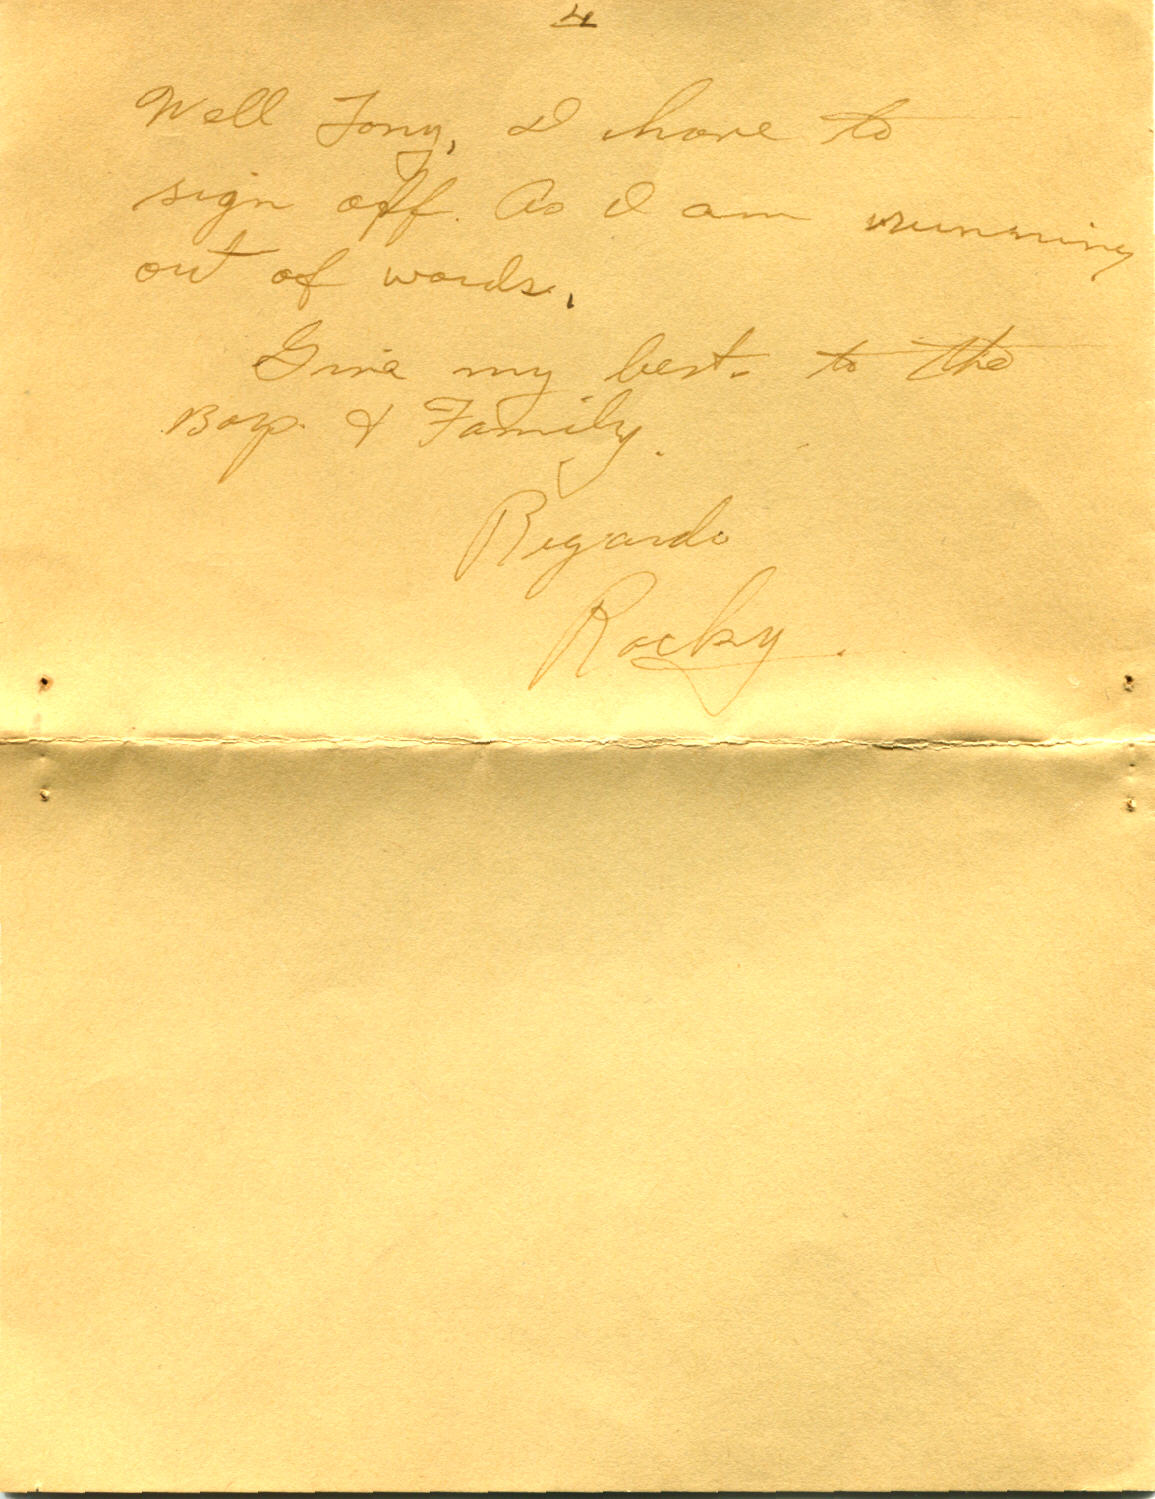 4
Well Tony, I have to
sign off. As I am running
out of words.
Give my best. to the
Boys. & Family.
Regards
Rocky.